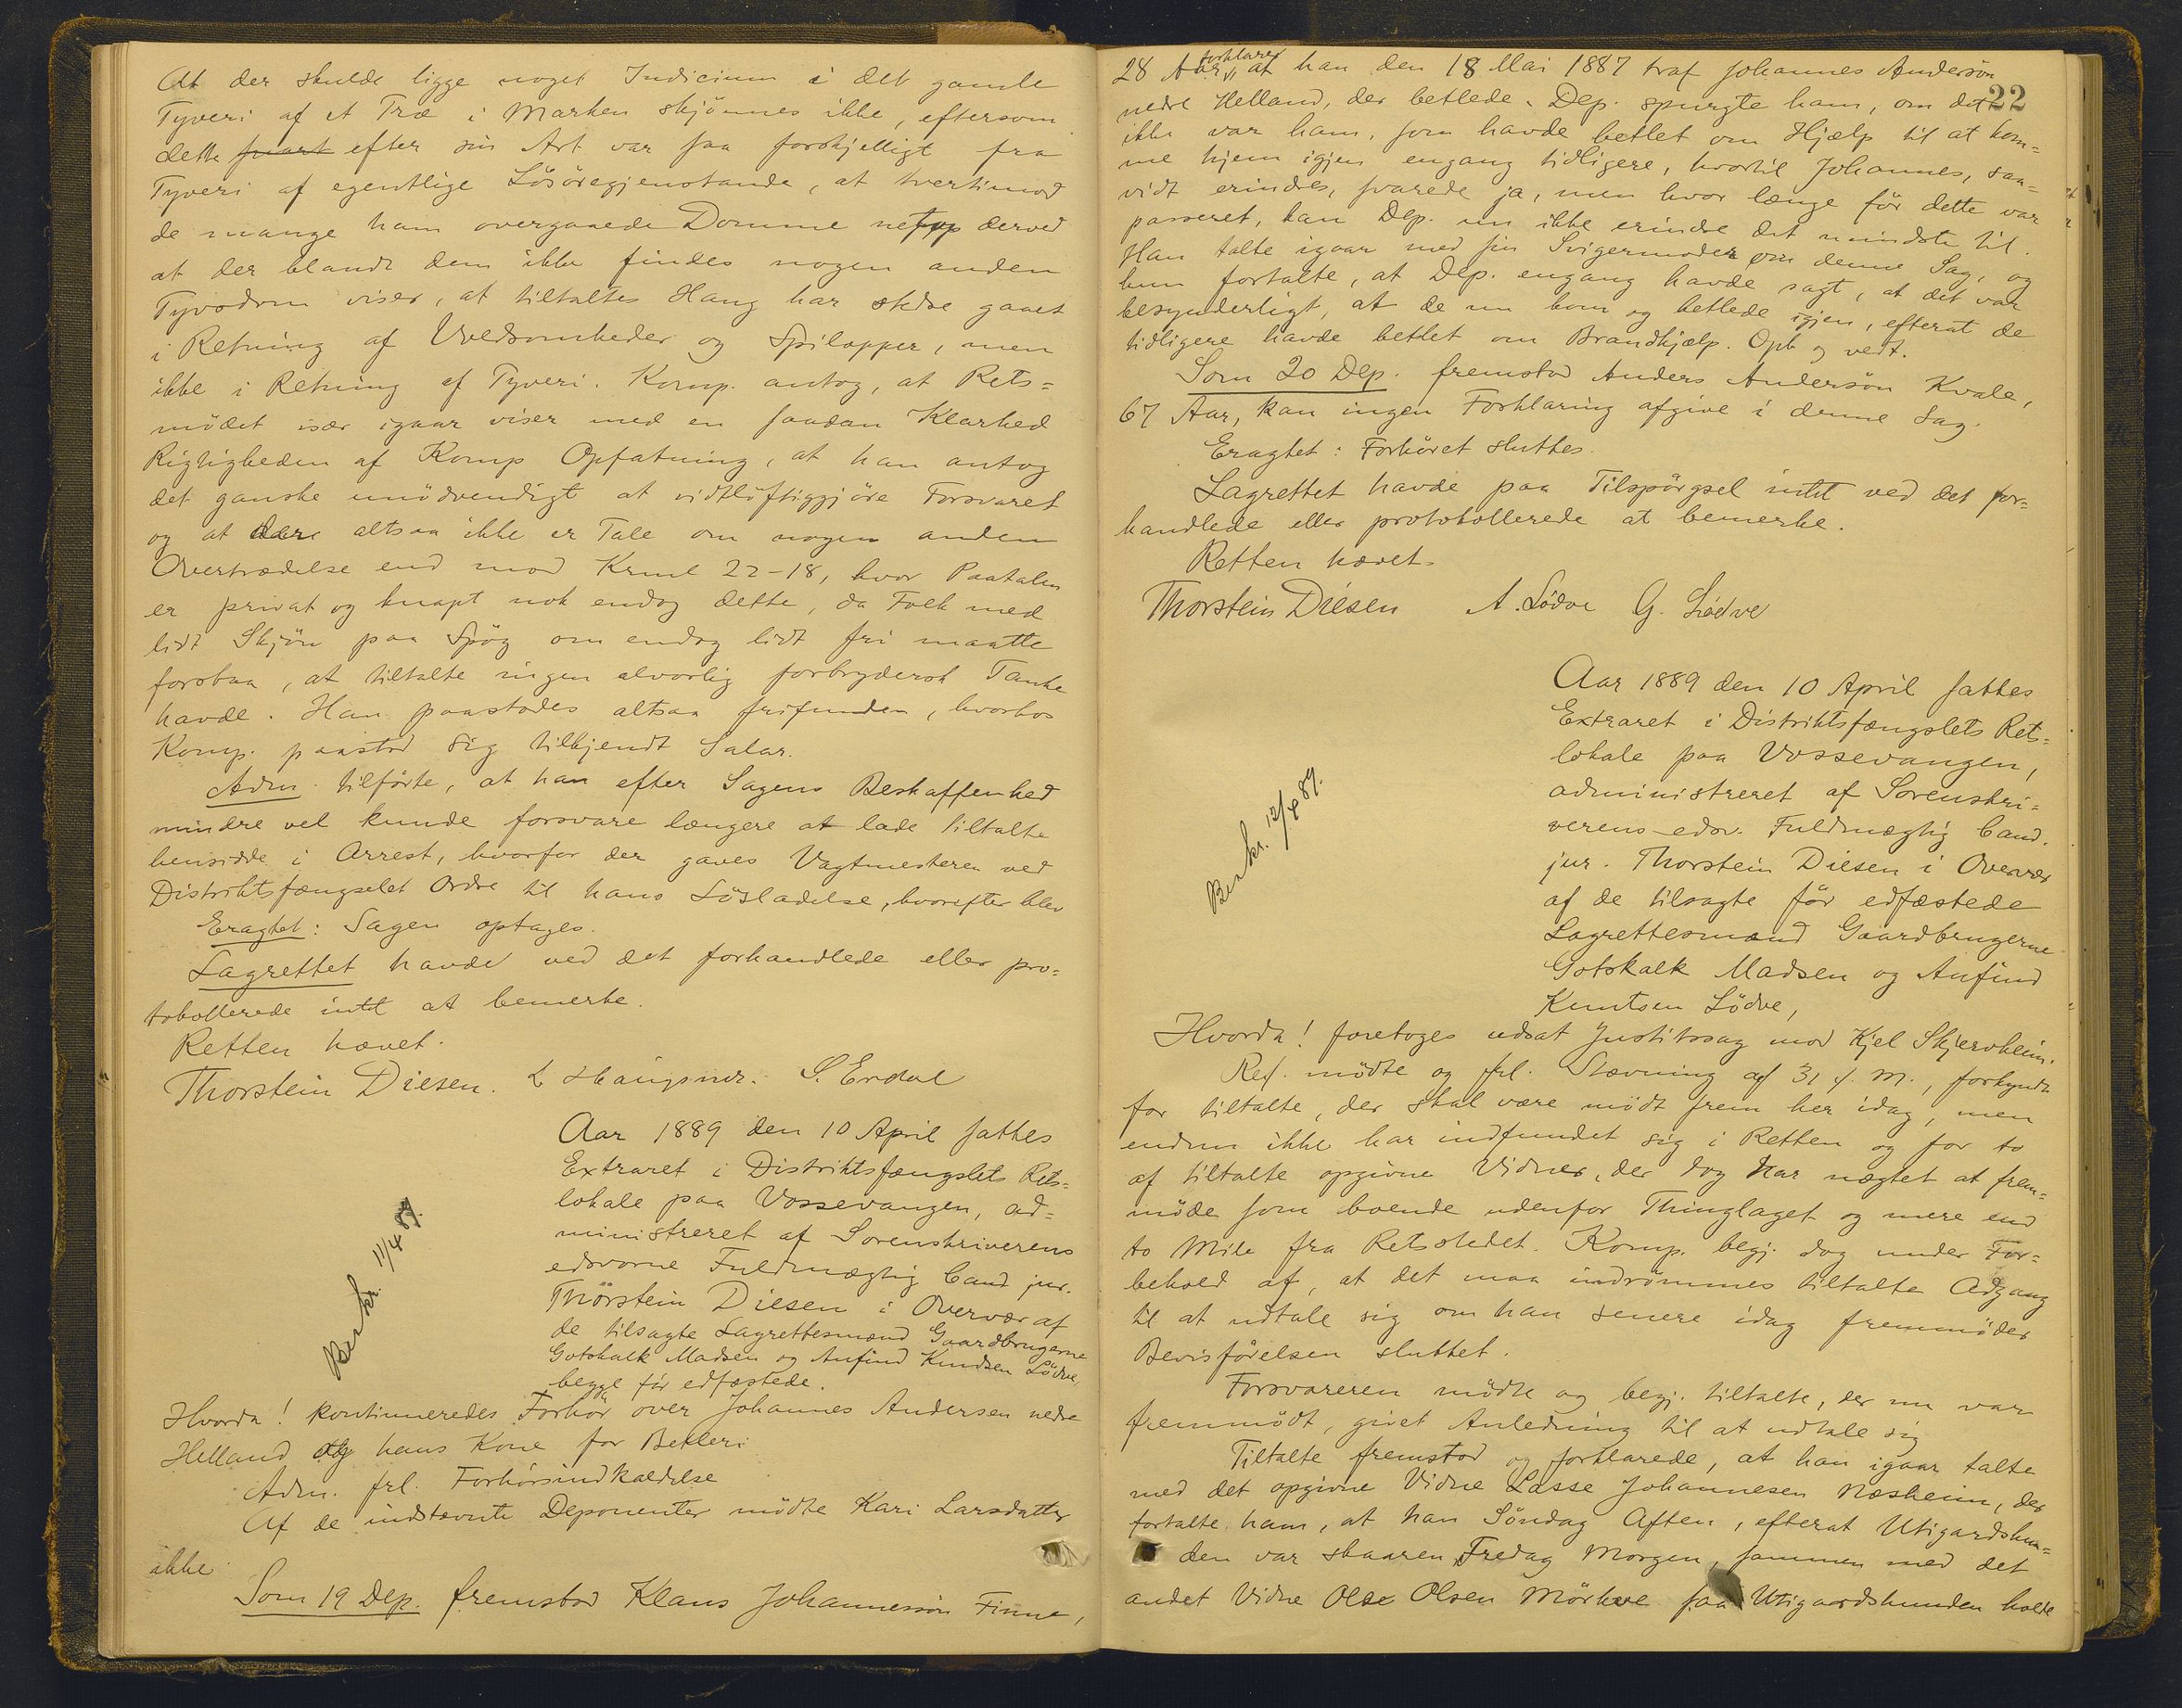 At der skulde ligge noget Indicium i det gamle
Tyveri af et Træ i Marken skjönnes ikke, eftersom
dette efter sin Art var saa forskjelligt fra
Tyveri af egentlige Lösöregjenstande, at tvertimod
de mange ham overgaaede Domme netop derved
at der blandt dem ikke findes nogen anden
Tyvsdom viser, at tiltaltes Hang har stedse gaaet
i Retning af Voldsomheder og Spilopper, men
ikke i Retning af Tyveri. Komp. antog, at Rets=
mödet især igaar viser med en saadan Klarhed
Rigtigheden af Komp Opfatning, at han antog
det ganske unödvendigt at vidtlöftiggjöre Forsvaret
og at der altsaa ikke er Tale om nogen anden
Overtrædelse end mod Krml 22-18, hvor Paatalen
er privat og knapt nok endog dette, da Folk med
lidt Skjön paa Spög om endog lidt fri maatte
forstaa, at tiltalte ingen alvorlig forbrydersk Tanke
havde. Han paastodes altsaa frifunden, hvorhos
Komp. paastod sig tilkjendt Salar.
Adm. tilförte, at han efter Sagens Beskaffenhed
mindre vel kunde forsvare længere at lade tiltalte
hensidde i Arrest, hvorfor der gaves Vagtmesteren ved
Distriktsfængselet Ordre til hans Lösladelse, hvorefter blev
Eragtet: Sagen optages.
Lagrettet havde ved det forhandlede eller pro=
tokollerede intet at bemerke.
Retten hævet.
Thorstein Diesen. L Haugsmr. S. Endal
Aar 1889 den 10 April sattes
Extraret i Distriktsfængslets Rets=
lokale paa Vossevangen, ad=
ministreret af Sorenskriverens
edsvorne Fuldmægtig Cand jur.
Thorstein Diesen i Overvær af
de tilsagte Lagrettesmænd Gaardbrugerne
Gotskalk Madsen og Anfind Knudsen Lödve,
begge för edfæstede.
Beskr. 11/4 89.
Hvorda! kontinueredes Forhör over Johannes Andersen nedre
Helland og hans Kone for Betleri
Adm. frl. Forhörsindkaldelse
Af de indstævnte Deponenter mödte Kari Larsdatter
ikke
Som 19 Dep. fremstod Klaus Johannessön Finne,
22
forklarer
28 Aar, at han den 18 Mai 1887 traf Johannes Andersön
nedre Helland, der betlede. Dep. spurgte ham, om det
ikke var ham, som havde betlet om Hjælp til at kom=
me hjem igjen engang tidligere, hvortil Johannes, saa=
vidt erindres, svarede ja, men hvor længe för dette var
passeret, kan Dep. nu ikke erindre det mindste til.
Han talte igaar med sin Svigermoder om denne Sag, og
hun fortalte, at Dep. engang havde sagt, at det var
besynderligt, at de nu kom og betlede igjen, efterat de
tidligere havde betlet om Brandhjælp. Opl. og vedt.
Som 20 Dep. fremstod Anders Andersön Kvale,
67 Aar, kan ingen Forklaring afgive i denne Sag.
Eragtet: Forhöret sluttes.
Lagrettet havde paa Tilspörgsel intet ved det for=
handlede eller protokollerede at bemerke.
Retten hævet.
Thorstein Diesen A. Lödve G. Lödve
Aar 1889 den 10 April sattes
Extraret i Distriktsfængslets Rets=
lokale paa Vossevangen,
administreret af Sorenskri=
verens edsv. Fuldmægtig Cand.
jur. Thorstein Diesen i Overvær
af de tilsagte för edfæstede
Lagrettesmænd Gaardbrugerne
Gotskalk Madsen og Anfind
Knutsen Lödve,
Beskr. 12/4 89.
Hvorda! foretoges udsat Justitssag mod Kjel Skjervheim.
Ref. mödte og frl. Stævning af 31 f. M., forkyndt
for tiltalte, der skal være mödt frem her idag, men
endnu ikke har indfundet sig i Retten og for to
af tiltalte opgivne Vidner, der dog har nægtet at frem=
möde som boende udenfor Thinglaget og mere end
to Mile fra Retsstedet. Komp. begj. dog under For=
behold af, at det maa indrömmes tiltalte Adgang
til at udtale sig om han senere idag fremmöder
Bevisförelsen sluttet.
Forsvareren mödte og begj. tiltalte, der nu var
fremmödt, givet Anledning til at udtale sig
Tiltalte fremstod og forklarede, at han igaar talte
med det opgivne Vidne Lasse Johannesen Næsheim, der
fortalte ham, at han Söndag Aften, efterat Utigardshun=
den var skaaren Fredag Morgen, sammen med det
andet Vidne Olse Olsen Mörkve saa Utigaardshunden holde